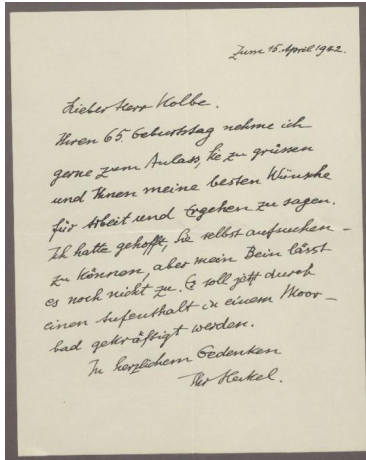 Zum 15. April 1942.
Lieber Herr Kolbe.
Ihren 65. Geburtstag nehme ich
gerne zum Anlass, Sie zu grüssen
und Ihnen meine besten Wünsche
für Arbeit und Ergehen zu sagen.
Ich hatte gehofft, Sie selbst aufsuchen -
zu können, aber mein Bein lässt
es noch nicht zu. Es soll jetzt durch
einen Aufenthalt in einem Moor -
bad gekräftigt werden.
In herzlichem Gedenken
Ihr Heckel.